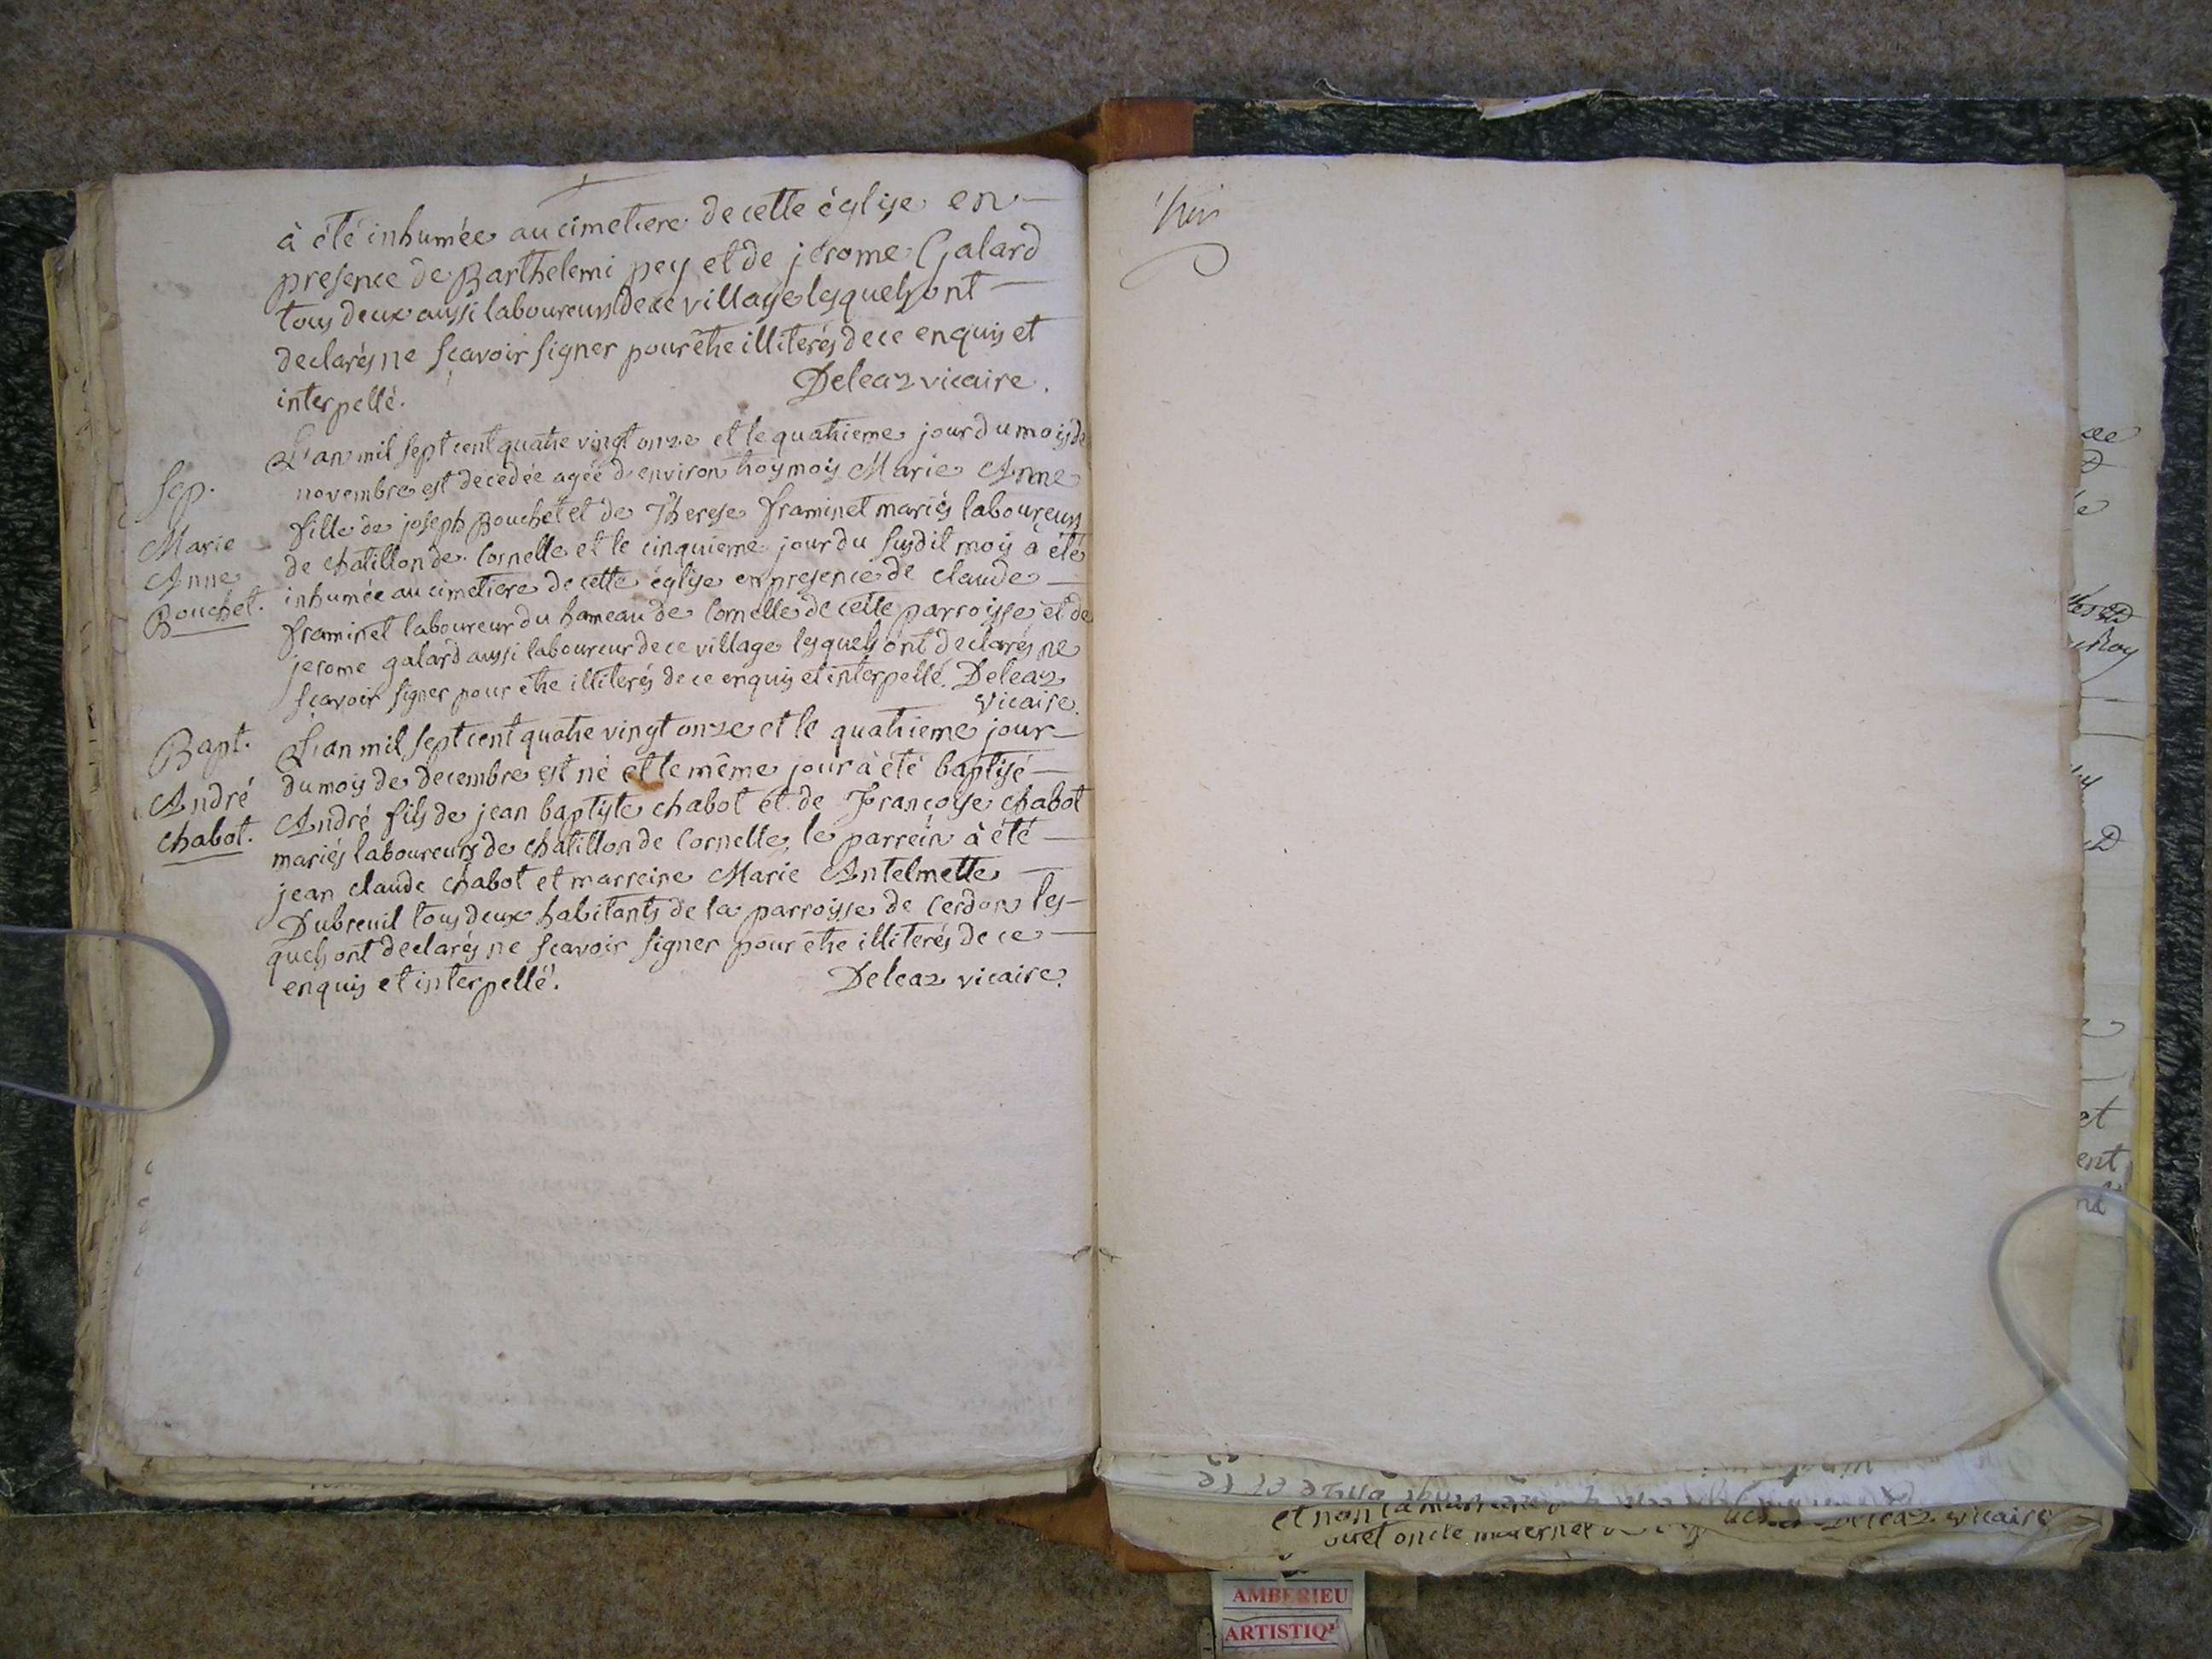 à été inhumée au cimetiere de cette église en
presence de Barthelemi pey et de jérome Galard
tous deux aussi laboureurs de ce village lesquels ont
declarés ne sçavoir signer pour être illiterés de ce enquis et
interpellé. Deleaz vicaire.
Sep.
Marie
Anne
Bouchet.
L'an mil sept cent quatre vingt onze et le quatrieme jour du mois de
novembre est decedée agée d'environ trois mois Marie Anne
fille de joseph Bouchet et de Therese framinet mariés laboureurs
de chatillon de Cornelle et le cinquieme jour du susdit mois a été
inhumée au cimetiere de cette église en presence de claude
framinet laboureur du hameau de Cornelle de cette parroisse et de
jerome galard aussi laboureur de ce village lesquels ont declarés ne
sçavoir signer pour être illiterés de ce enquis et interpellé. Deleaz
vicaire.
Bapt.
André
chabot.
L'an mil sept cent quatre vingt onze et le quatrieme jour
du mois de decembre est né et le même jour à été baptisé
André fils de jean baptiste chabot et de Françoise chabot
mariés laboureurs de chatillon de Cornelle, le parrein à été
jean claude chabot et marreine Marie Antelmette
Dubreuil tous deux habitants de la parroisse de Cerdon les-
quels ont declarés ne scavoir signer pour être illiterés de ce
enquis et interpellé. Deleaz vicaire.
et
ent
et non la
Deleaz vicaire
AMBERIEU
ARTISTIQ